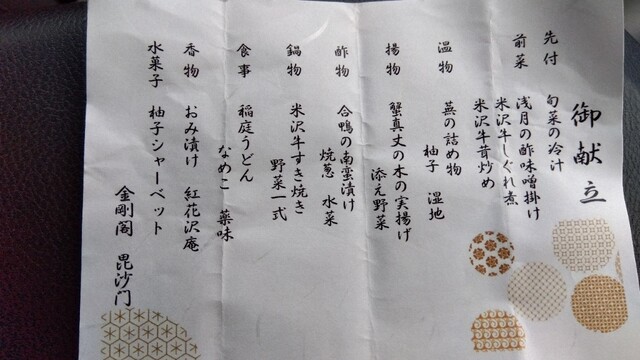 御献立
先付 旬菜の冷汁
前菜 浅月の酢味噌掛け
米沢牛しぐれ煮
米沢牛茸炒め
温物 蕪の詰め物
柚子 湿地
揚物 蟹真丈の木の実揚げ
添え野菜
酢物 合鴨の南蛮漬け
焼葱 水菜
鍋物 米沢牛すき焼き
野菜一式
食事 稲庭うどん
なめこ 薬味
香物 おみ漬け 紅花沢庵
水菓子 柚子シャーベット
金剛閣 毘沙門